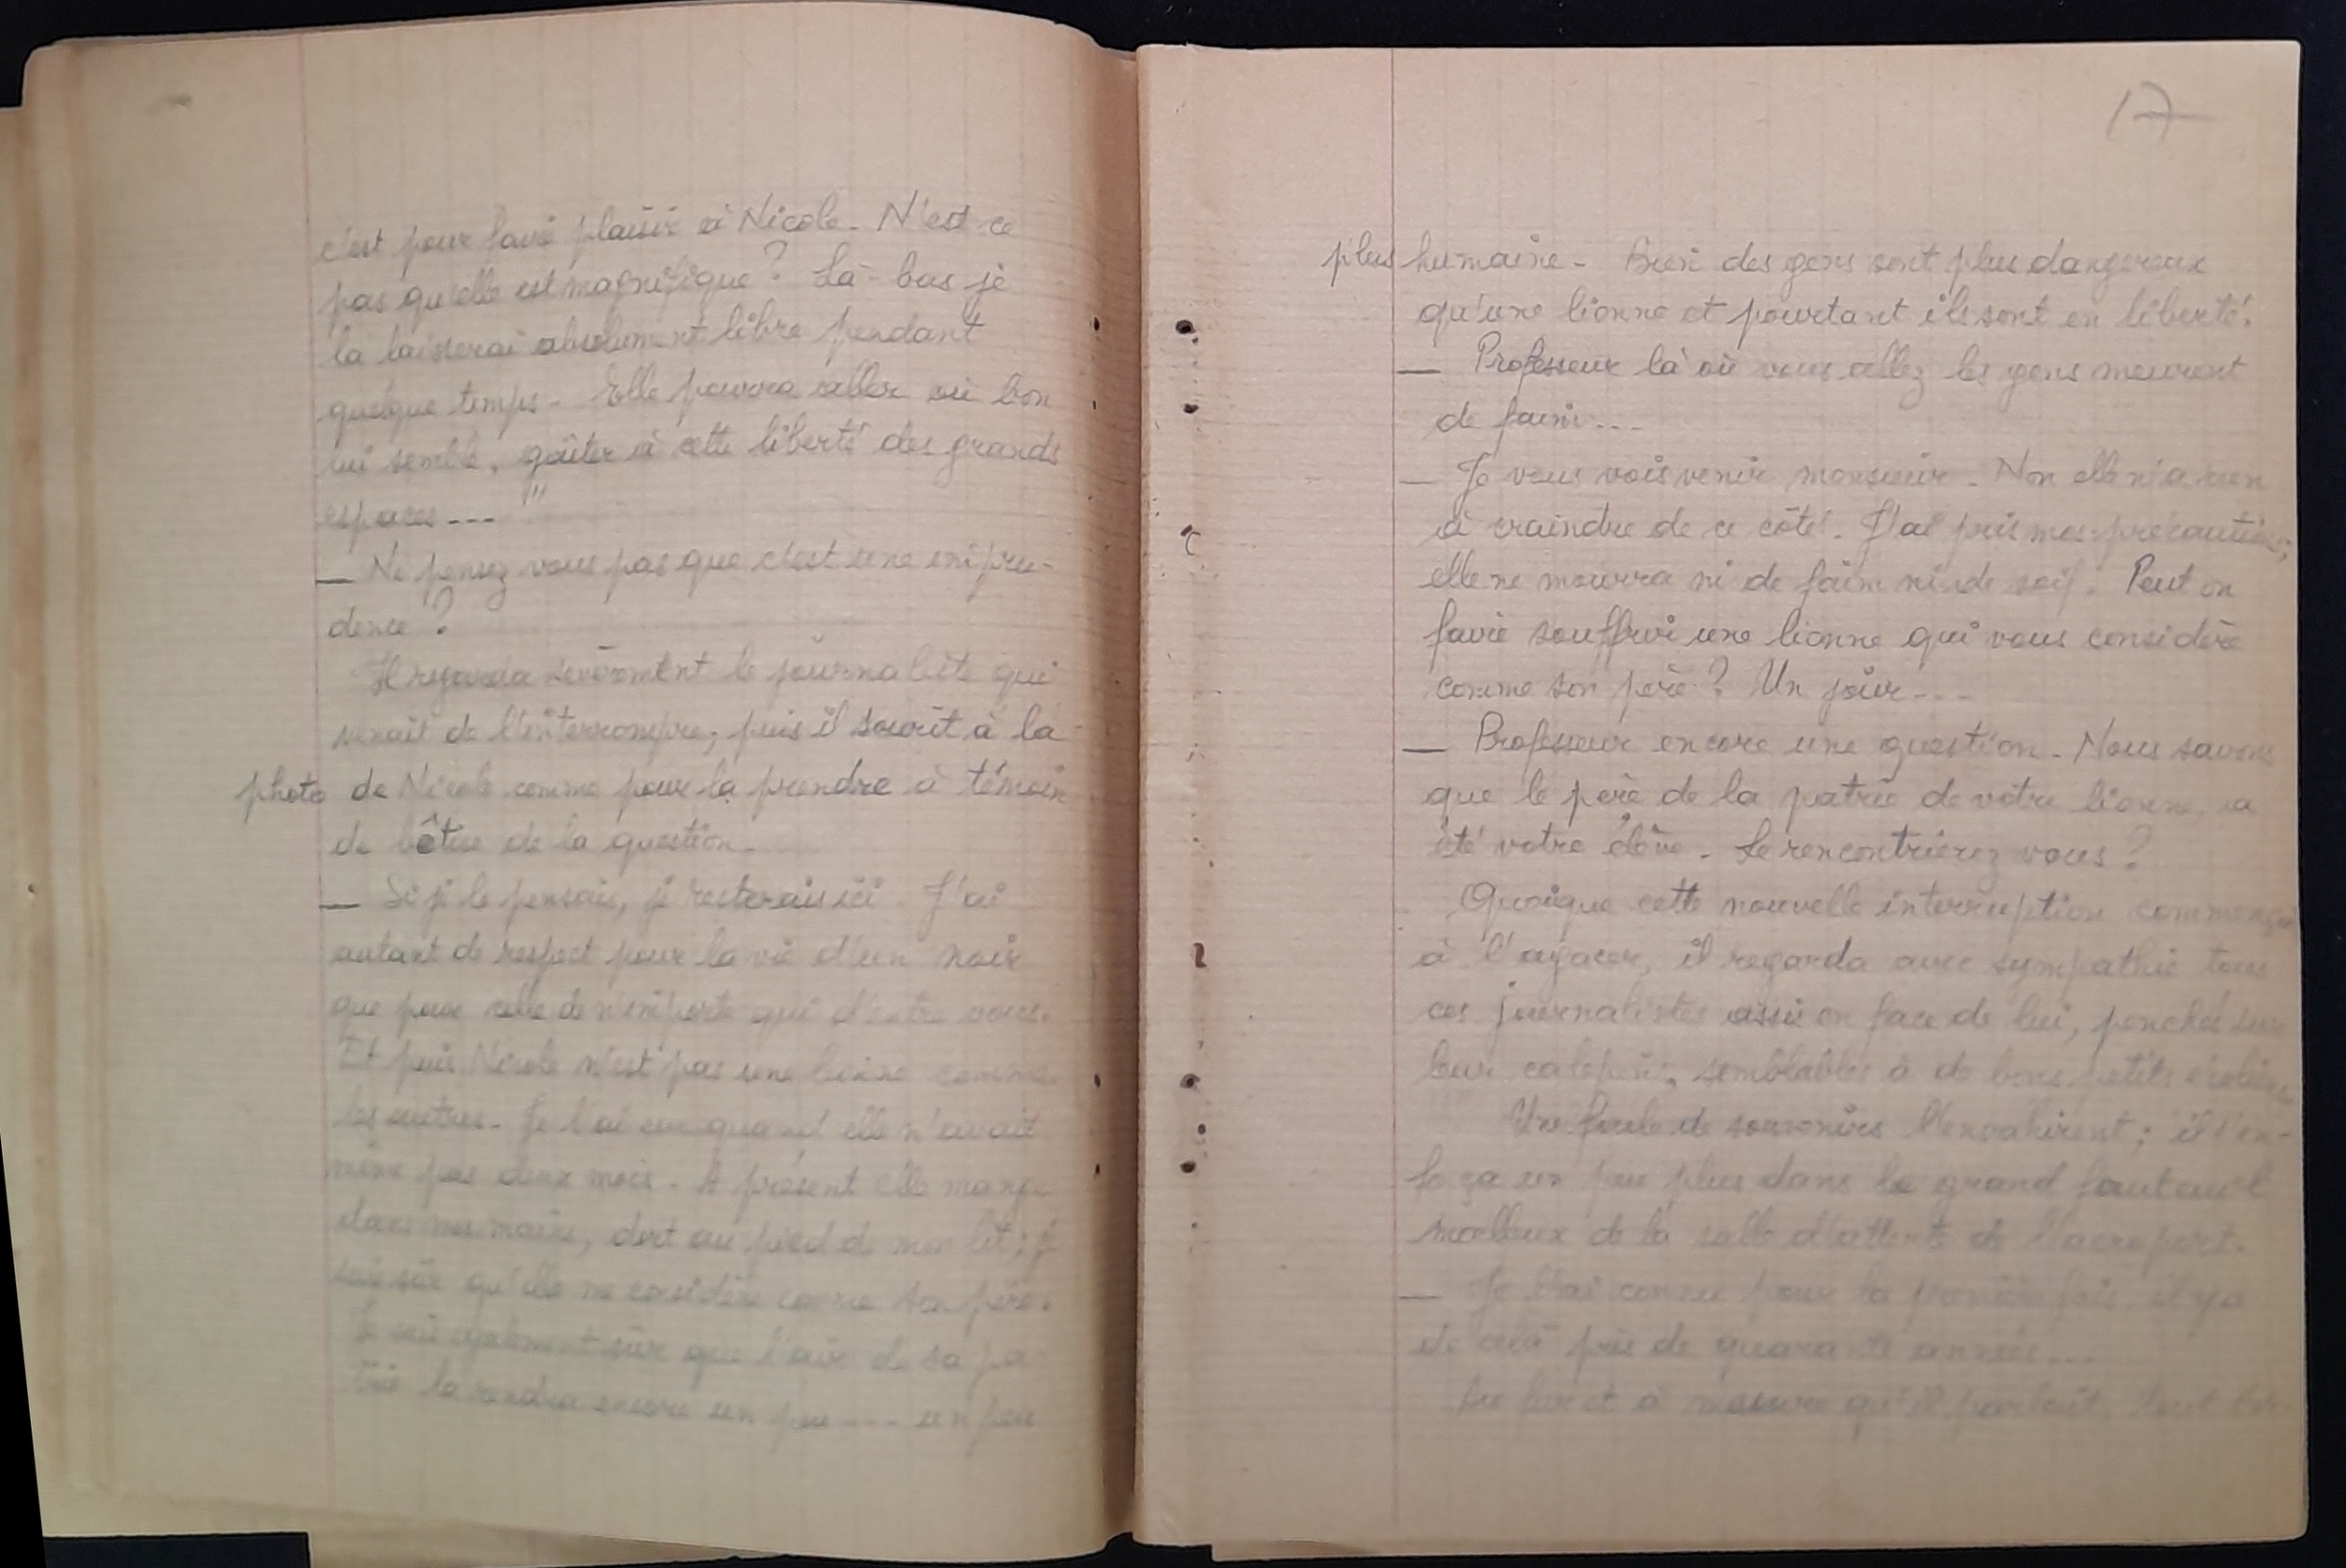 c'est pour faire plaisir à Nicole. N'est ce
pas qu'elle est magnifique ? Là-bas je
la laisserai absolument libre pendant
quelque temps. Elle pourra aller où bon
lui semble, goûter à cette liberté des grands
espaces --- "
— Ne pensez vous pas que c'est une impru-
dence ?
Il regarda sevèrement le journaliste qui
venait de l'interrompre, puis il sourit à la
photo de Nicole comme pour la prendre à témoin
de bêtise de la question.
— Si je le pensais, je resterais ici. J'ai
autant de respect pour la vie d'un noir
que pour celle de n'importe qui d'entre vous.
Et puis Nicole n'est pas une lionne comme
les autres. Je l'ai eue quand elle n'avait
même pas deux mois. A présent elle mange
dans ma main, dort au pied de mon lit ; je
suis sûr qu'elle me considère comme son père.
Je suis également sûr que l'air de sa pa
trie la rendra encore un peu --- un peu
17
plus humaine - Bien des gens sont plus dangereux
qu'une lionne et pourtant ils sont en liberté.
— Professeur là où vous allez les gens meurent
de faim ---
— Je vous vois venir monsieur. Non elle n'a rien
à craindre de ce côté. J'ai pris mes précautions,
elle ne mourra ni de faim ni de soif. Peut on
faire souffrir une lionne qui vous considère
comme son père ? Un jour ---
— Professeur encore une question. Nous savons
que le père de la patrie de votre lionne a
été votre élève. Le rencontrierez vous ?
Quoique cette nouvelle interruption commençait
à l'agacer, il regarda avec sympathie tous
ces journalistes assis en face de lui, penchés sur
leur calepin, semblables à de bons petits écoliers
Une foule de souvenirs l'envahirent ; il s'en-
fonça un peu plus dans le grand fauteuil
moelleux de la salle d'attente de l'aeroport.
— Je l'ai connu pour la première fois il y a
de cela près de quarante années ---
Au fur et à mesure qu'il parlait, tout